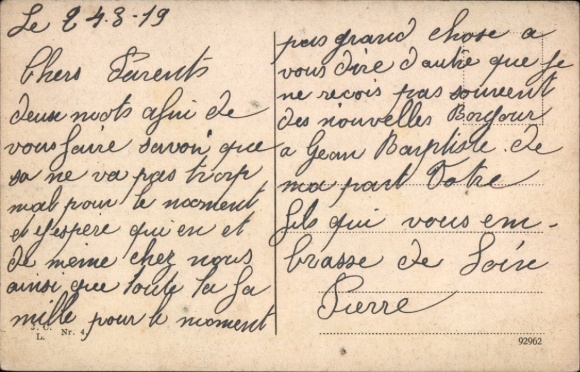 Le 24.3-19
Chers Parents
deux mots afin de
vous faire savoir que
sa ne va pas trop
mal pour le moment
et jespere qui en et
de meime chez nous
ainsi que toute la fa
mille pour le moment
pas grand chose a
vous dire dautre que je
ne recois pas souvent
des nouvelles Bonjour
a Gean Baptiste de
ma part Votre
fils qui vous em-
brasse de Loin
Pierre
J. C. L. Nr. 4
92962